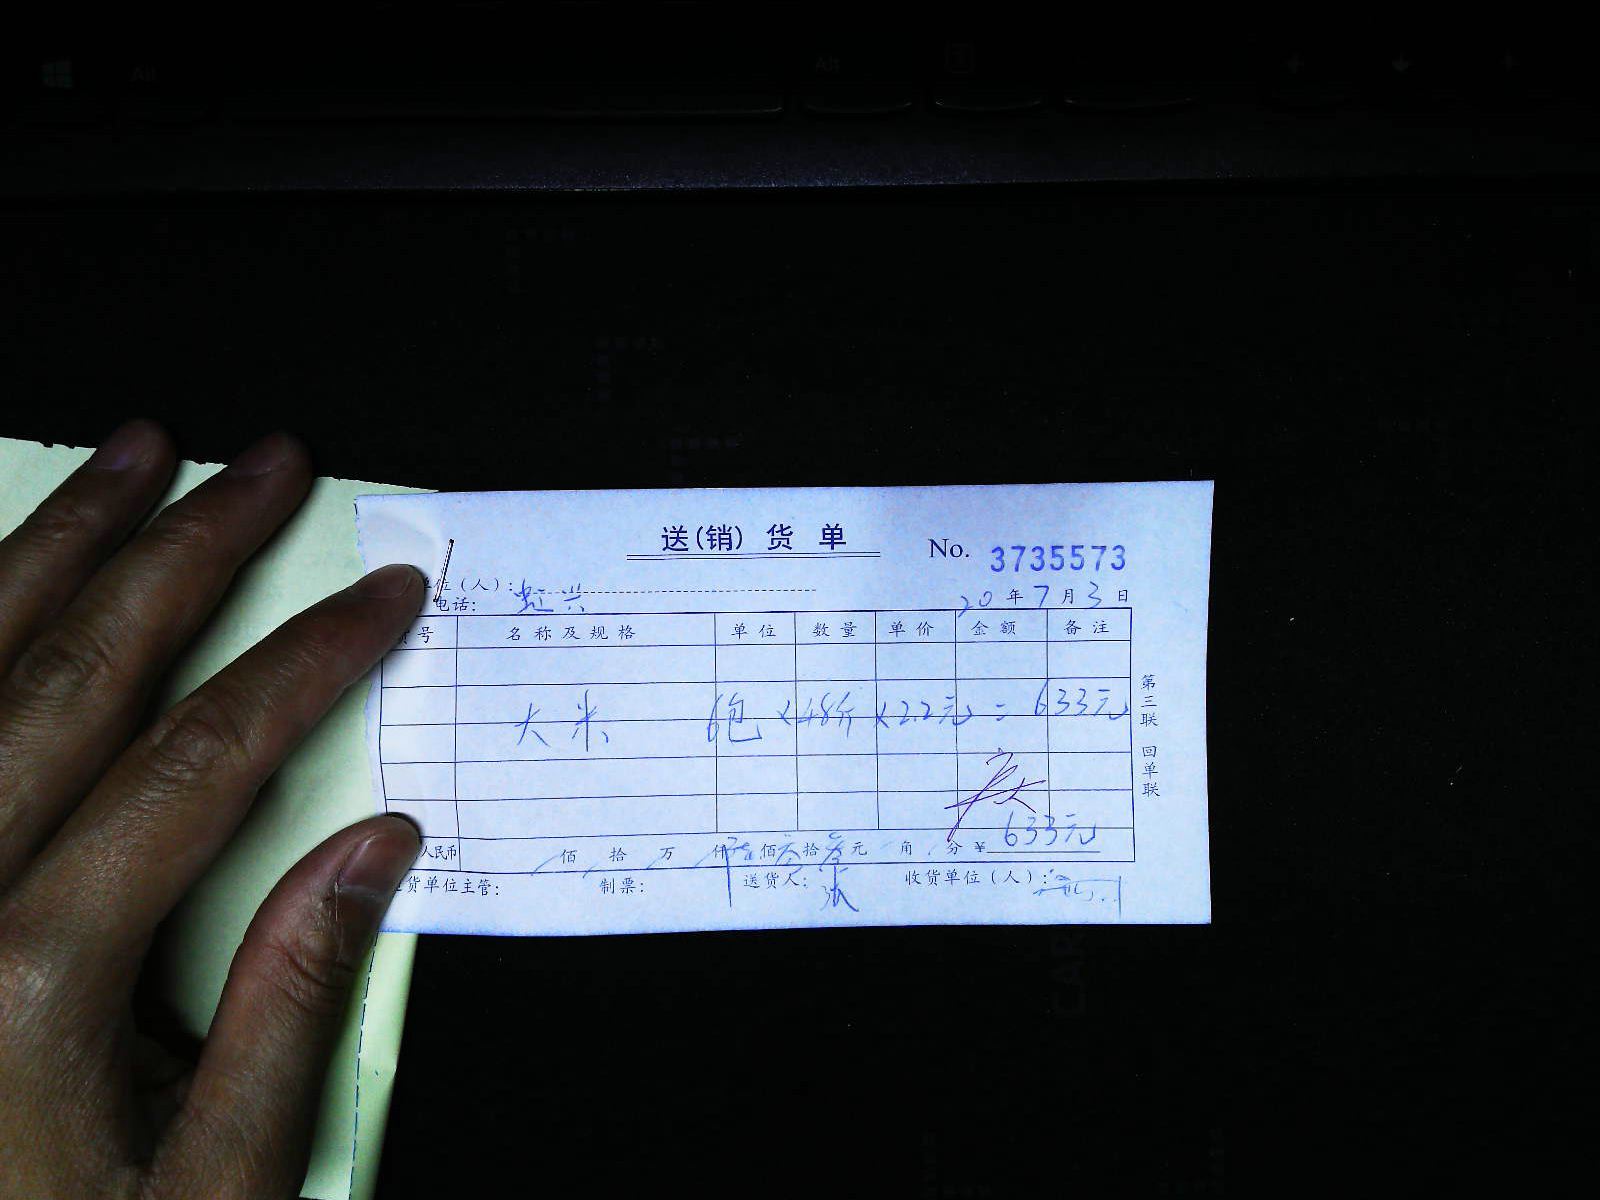 Alt Alt
送(销)货单
No. 3735573
单位(人):
电话:
20年7月3日
号 名称及规格 单位 数量 单价 金额 备注
大米 6包 ×48斤 ×2.2元 = 633元
第三联 回单联
人民币 佰 拾 万 仟 佰 拾 元 角 分 ¥ 633元
货单位主管: 制票: 送货人: 张 收货单位(人):